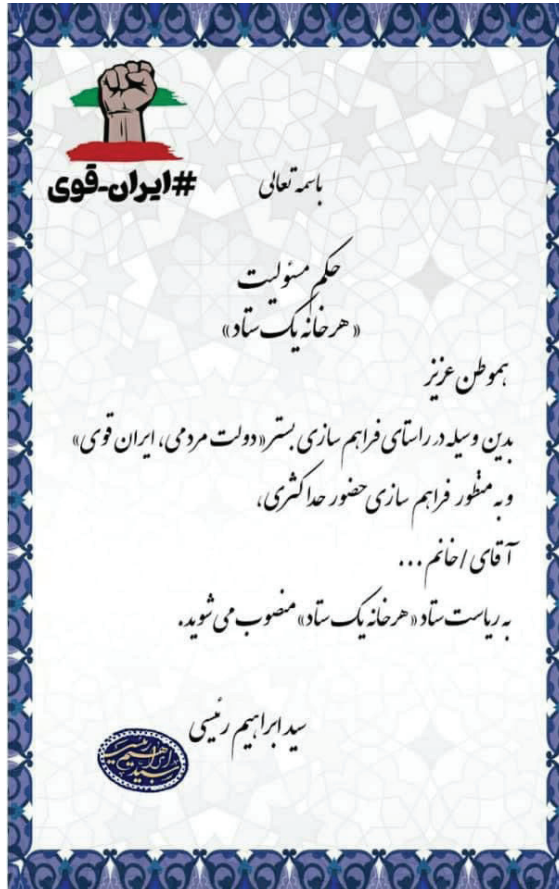 #ایران-قوی
باسمه تعالی
حکم مسئولیت
«هر خانه یک ستاد»
هموطن عزیز
بدین وسیله در راستای فراهم سازی بستر «دولت مردمی، ایران قوی»
و به منظور فراهم سازی حضور حداکثری،
آقای/خانم ...
به ریاست ستاد «هر خانه یک ستاد» منصوب می شوید.
سید ابراهیم رئیسی
سید ابراهیم رئیسی